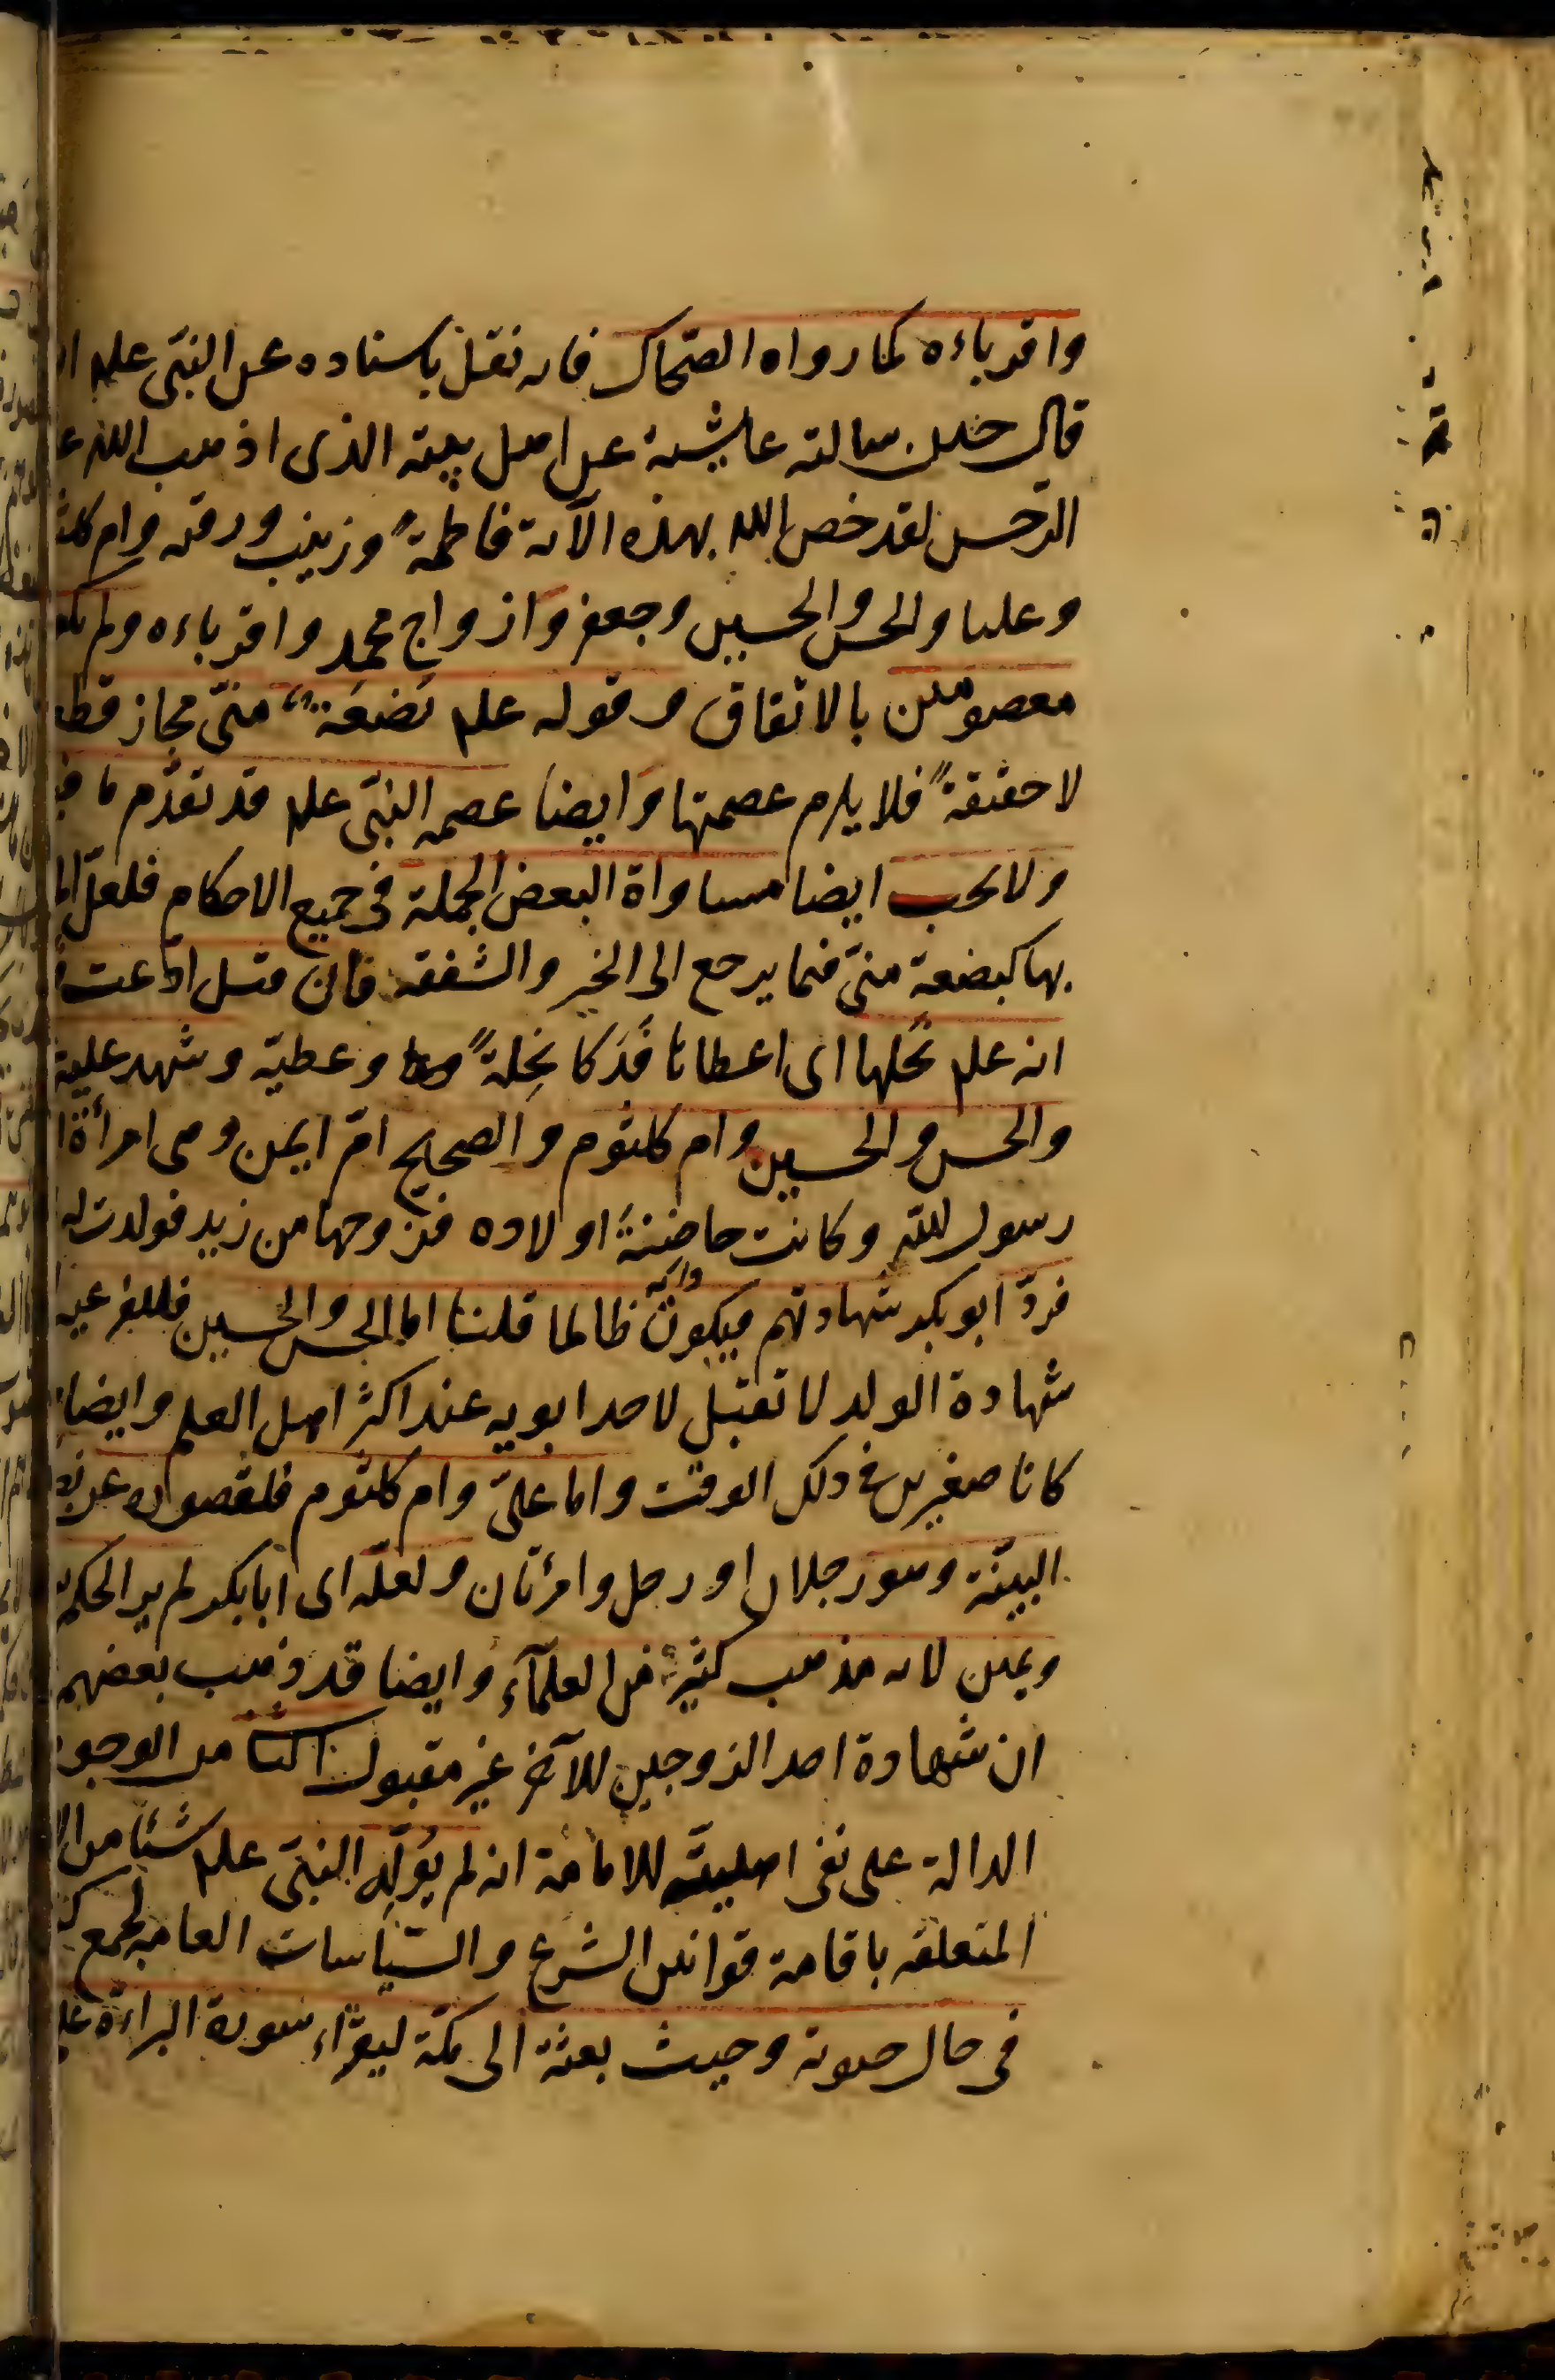 واقرباءه كما رواه الضحاك فانه نقل باسناده عن النبي علم
قال حين سالته عايشة عن اهل بيته الذى اذهب الله
الرجس لقد خص الله بهذه الآية فاطمةً وزينب ورقيه وام
وعليا والحسن والحسين وجعفر وازواج محمد واقرباءه ولم
معصومين بالاتفاق وقوله علم بَضعَة منّى مجاز
لا حقيقةً فلا يلزم عصمتها وايضا عصمه النبى علم قد تقدّم ما
ولا يجب ايضا مساواة البعض الجملة فى جميع الاحكام فلعلّ
بها كبضعة منّى فيما يرجع الى الخير والشفقه فان قيل ادّعت
انه علم نحلها اى اعطاها فَدَكا نِحلةً وعطيّه وشهد عليه
والحسن والحسين وام كلثوم والصحيح امّ ايمن وهى امرأة
رسول الله وكانت حاضنةَ اولاده فزوجها من زيد فولدت له
فردّ ابو بكر شهادتهم فيكون ظالما قلنا اما الحسن والحسين فللفرعيه
شهادة الولد لا تقبل لاحد ابويه عند اكثر اهل العلم وايضا
كانا صغيرين فى ذلك الوقت واما علىّ وام كلثوم فلقصوره عن
البينة وهو رجلان او رجل وامرأتان ولعلّه اى ابا بكر لم ير الحكم
ويمين لانه مذهب كثيرٍ من العلمآء وايضا قد ذهب بعضهم
ان شهادة احد الزوجين للآخر غير مقبول الثامن الوجوه
الدالة على نفى اهليته للامامة انه لم يُوَلِّه النبى علم شيئا من
المتعلقه باقامة قوانين الشرع والسّياسات العامه لجمع
فى حال حيوته وحيث بعثه الى مكّة ليقرأ سورة البراءة